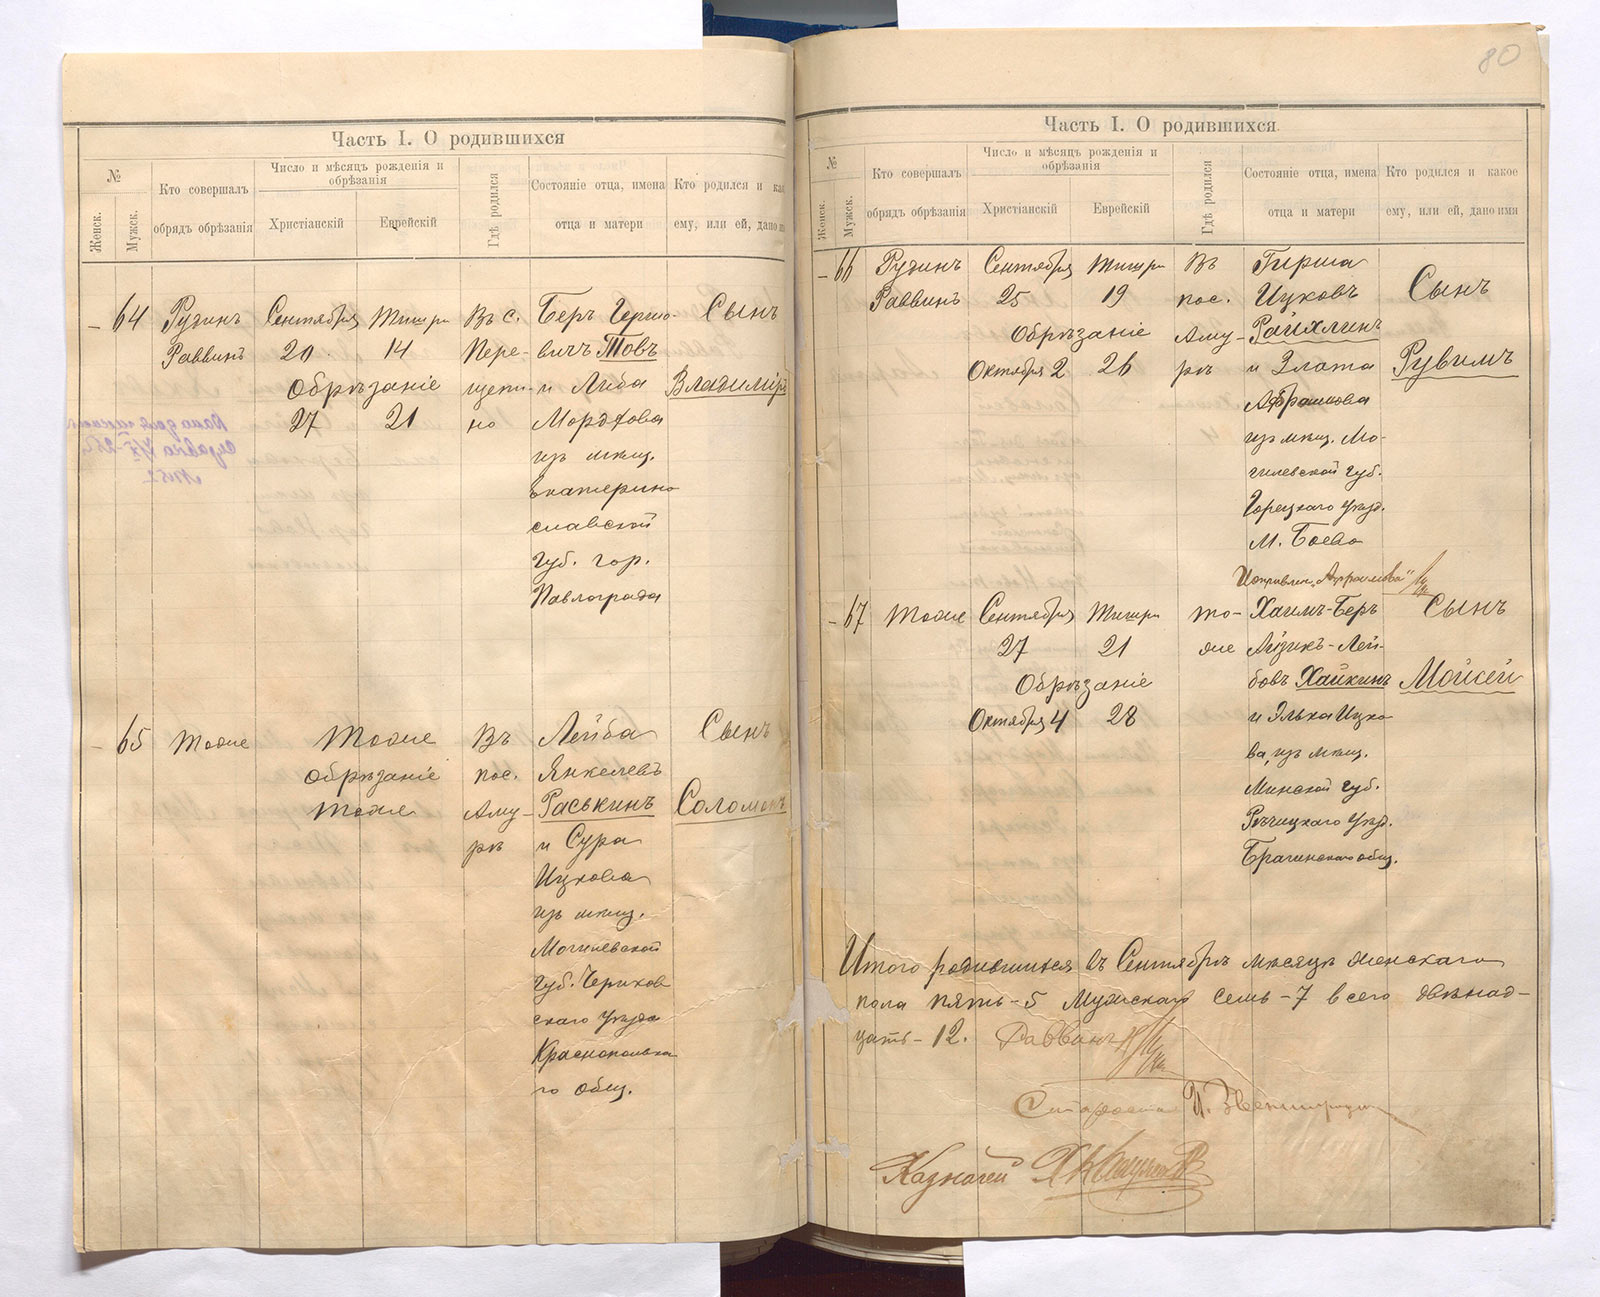 80
Часть I. О родившихся
№
Женск.
Мужск.
Кто совершалъ
обрядъ обрѣзанія
Число и мѣсяцъ рожденія и
обрѣзанія
Христіанскій
Еврейскій
Гдѣ родился
Состояніе отца, имена
отца и матери
Кто родился и как
ему, или ей, дано им
– 64 Рузинъ Сентября Тишри Въ с. Беръ Гершо- Сынъ
Раввинъ 20. 14 Пере- вичъ Товъ
Обрѣзаніе щепи- и Либа Владиміръ
27 21 но Мордхова
изъ мѣщ.
Екатерино
славской
Губ. гор.
Павлограда
– 65 Тоже Тоже Въ Лейба Сынъ
Обрѣзаніе пос. Янкелевъ
Тоже Аму- Раськинъ Соломонъ
рѣ и Сура
Ицкова
изъ мѣщ.
Могилевской
Губ. Чериков
скаго уѣзда
Краснопольска
го общ.
Часть I. О родившихся
№
Женск.
Мужск.
Кто совершалъ
обрядъ обрѣзанія
Число и мѣсяцъ рожденія и
обрѣзанія
Христіанскій
Еврейскій
Гдѣ родился
Состояніе отца, имена
отца и матери
Кто родился и какое
ему, или ей, дано имя
– 66 Рузинъ Сентября Тишри Въ Гирша Сынъ
Раввинъ 25 19 пос. Ицковъ
Обрѣзаніе Аму- Райхлинъ
Октября 2 26 рѣ и Злата Рувимъ
изъ мѣщ. Мо-
гилевской Губ.
Горецкаго уѣзд.
М. Боево
– 67 Тоже Сентября Тишри то- Хаимъ-Беръ Сынъ
27 21 же Айзикъ-Лей-
Обрѣзаніе бовъ Хайкинъ Мойсей
Октября 4 28 и Элька Ицко
ва, изъ мѣщ.
Минской Губ.
Рѣчицкаго Уѣзд.
Брагинскаго общ.
Итого родившихся въ Сентябрѣ мѣсяцѣ женскаго
пола пять – 5 Мужскаго семь – 7 всего двѣнад-
цать – 12. Раввинъ
Староста
Казначей